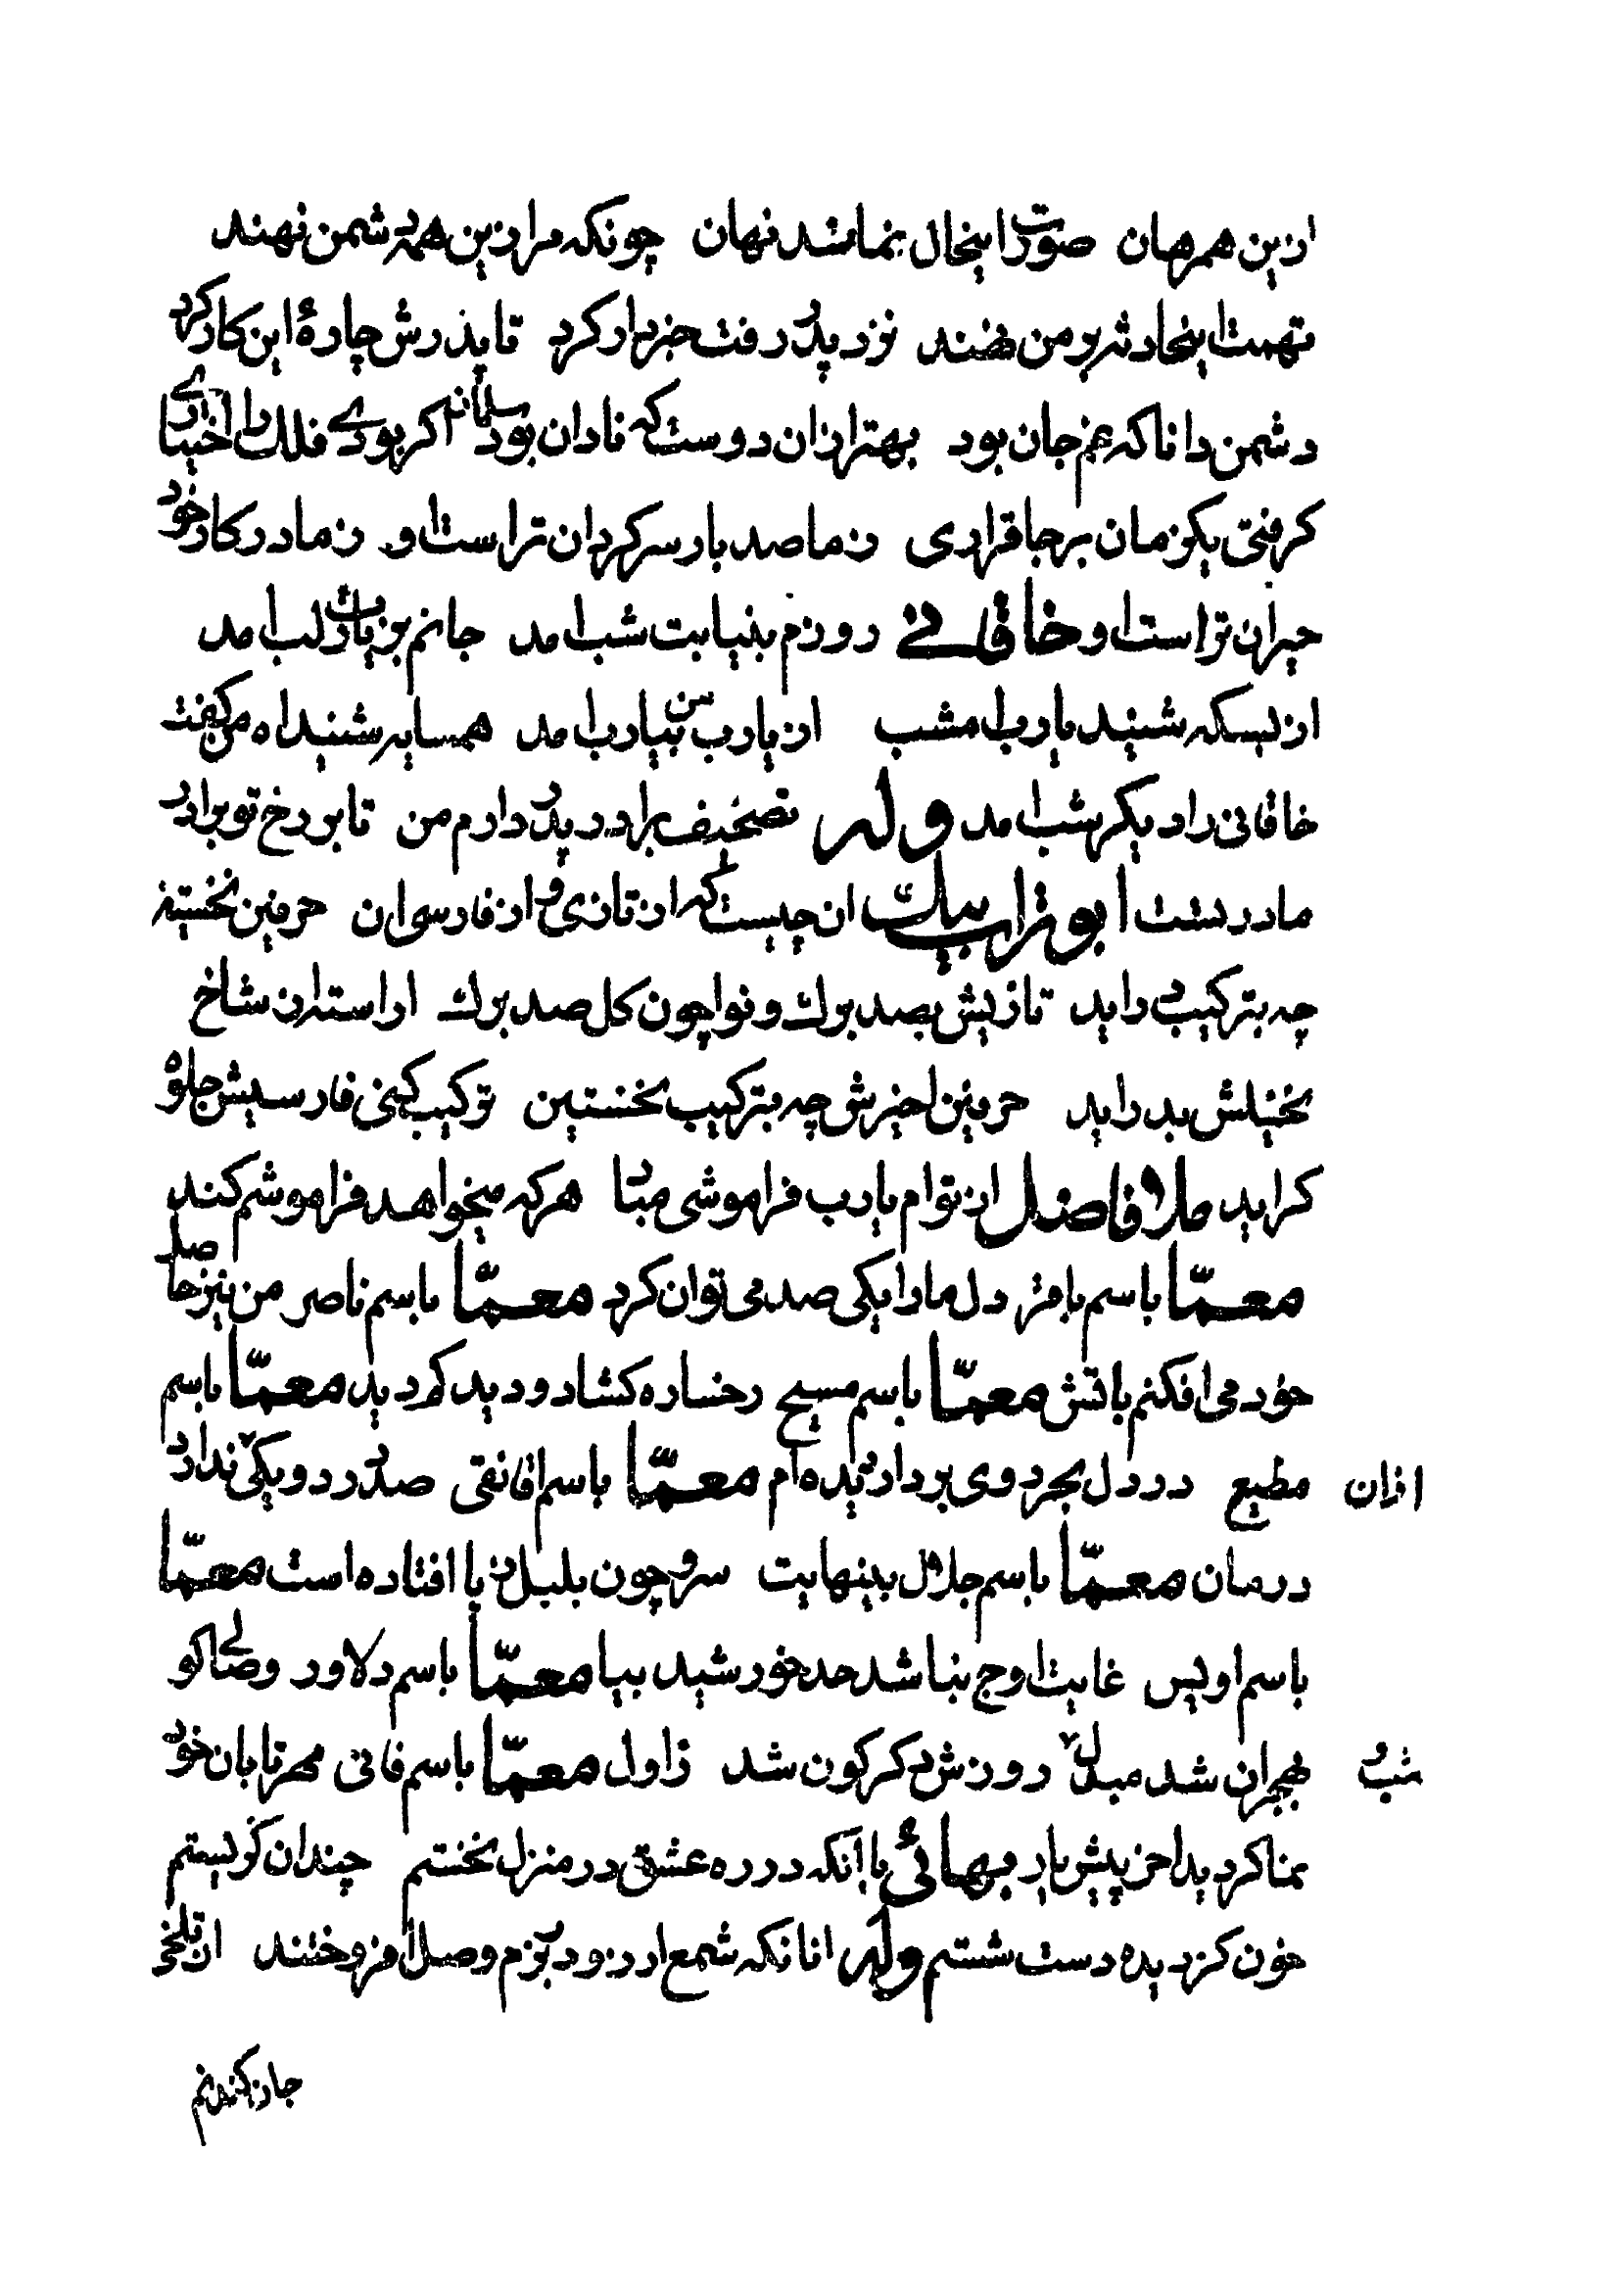 ازین همرهان صورت اینحال بنمانند نهان چونکه مرا زین همه دشمن نهند
تهمت اینحادثه بر من نهند نزد پدر رفت خبردار کرد تا پدرش چارهٔ این کار کرد
دشمن دانا که غم جان بود بهتر ازان دوست که نادان بود سلمان اگر بودی فلک را اختیاری
کرفتی یکزمان بر جا قراری ز ما صد بار سرکردان تر است او ز ما در کار خود
حیران تر است او خاقانی روزم بنیابت شب امد جانم بزیارت لب امد
از بسکه شنید یارب امشب از یارب من بیارب امد همسایه شنید اه من گفت
خاقانی را دیگر شب امد وله تصحیف برادر پدر دارم من تا بر رخ تو برادر
مادر تست ابو تراب بیک ان چیست که از تازی و از فارسی ان حرفین نخستین
چه بترکیب در اید تازیش بصد برک و نوا چون کل صد برک اراسته از شاخ
نخیلش بدر اید حرفین اخیرش چه بترکیب نخستین ترکیب کنی فارسیش جلوه
کر اید ملا فاضل از توام یارب فراموشی مباد هر که میخواهد فراموشم کند
معمّا باسم باقر دل ما را یکی صد می توان کرد معمّا باسم ناصر من نیز حاصل
خود می افکنم باتش معمّا باسم مسیح رخساره کشاد و دید کردید معمّا باسم
مطیع در دل بحر دوی بردار دیده ام معمّا باسم اقا نقی صد درد و یکی ندارد ازان
درمان معمّا باسم جلال بینهایت سرو چون بلبل ز پا افتاده است معمّا
باسم اویس غایت اوج نباشد حد خورشید بیا معمّا باسم دلاور وصالی کو
بهجران شد مبدل روزش دکرکون شد ز اول معمّا باسم فانی مهر تابان خود شب و
نما کردید اخر پیش یار بهائی با انکه در ره عشق در منزل نخستم چندان کریستم
خون کز دیده دست شستم وله انانکه شمع ارزو در بزم وصل افروختند از تلخی
جان کندنم